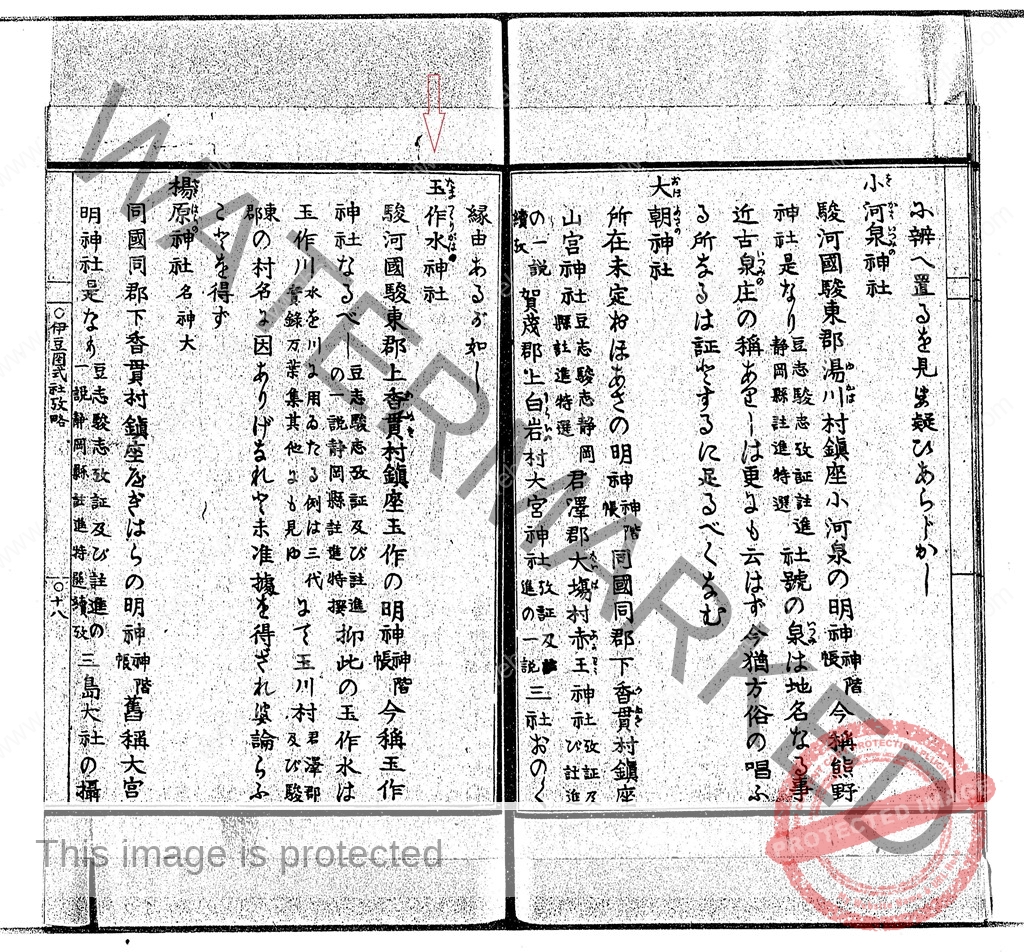 に辨へ置るを見
小河泉神社
駿河國駿東郡湯川村鎭座小河泉の明神 神階帳 今稱熊野
神社是なり 豆志駿志攷証註進 靜岡縣註進特選 社號の泉は地名なる事
近古泉庄の稱あ は更にも云はず今猶方俗の唱ふ
る所なるは証とするに足るべくなむ
大朝神社
所在未定おほあさの明神 神階帳 同國同郡下香貫村鎭座
山宮神社 豆志駿志靜岡縣註進特選 君澤郡大塲村赤王神社 攷証及び註進
の一説 賀茂郡上白岩村大宮神社 攷証及 進の一説 三社おの
續攷
縁由あるが如し
玉作水神社
駿河國駿東郡上香貫村鎭座玉作の明神 神階帳 今稱玉作
神社なるべし 豆志駿志攷証及び註進の一説靜岡縣註進特撰 抑此の玉作水は
玉作川 水を川に用ゐたる例は三代實錄万葉集其他にも見ゆ にて玉川村 君澤郡及び駿
東郡 の村名に因ありげなれど未准據を得ざれば論らふ
ことを得ず
楊原神社 名神大
同國同郡下香貫村鎭座やぎはらの明神 神階帳 舊稱大宮
明神社是なり 豆志駿志攷証及び註進の一説靜岡縣註進特選續攷 三島大社の攝
○伊豆國式社攷略
○十八
WATERMARKED
This image is protected
PROTECTED IMAGE